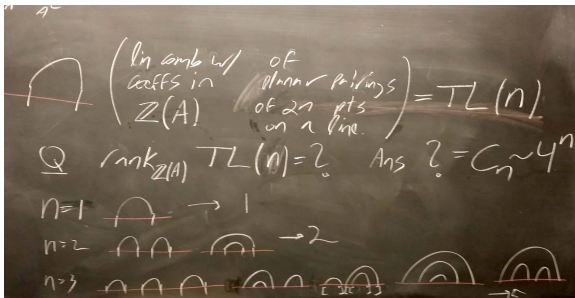 A²
(lin comb w/ of
coeffs in planar pairings
Z(A) of 2n pts
on a line.) = TL(n)
Q rank_Z(A) TL(n) = ? Ans ? = C_n ~ 4^n
n=1 → 1
n=2 → 2
n=3 → 5